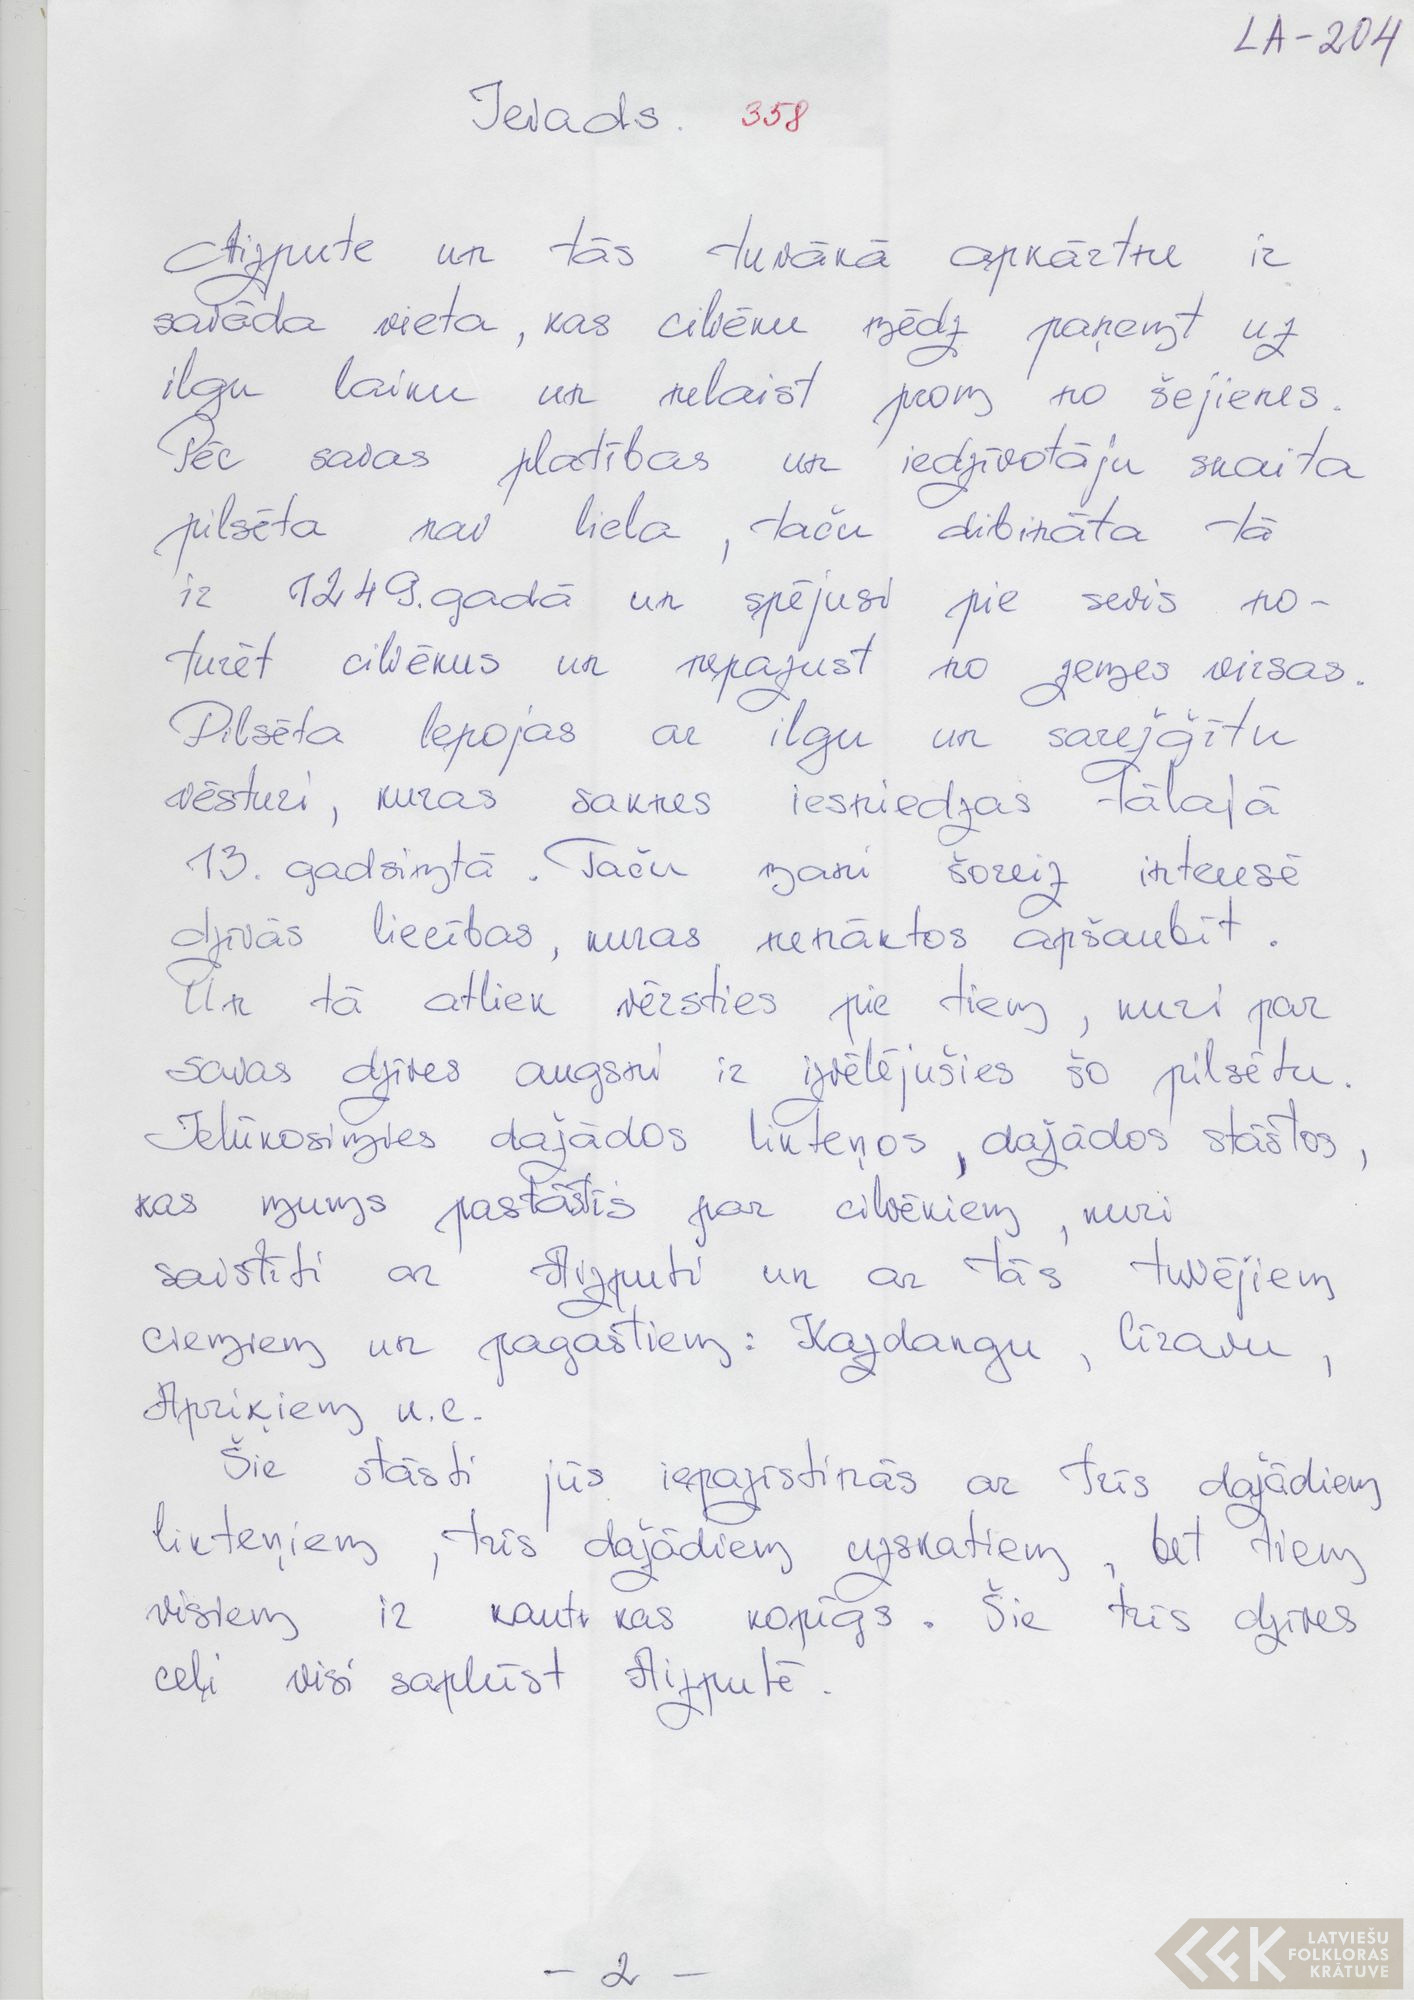 LA-204
Ievads. 358
Aizpute un tās tuvākā apkārtne ir
savāda vieta, kas cilvēku mēdz paņemt uz
ilgu laiku un nelaist prom no šejienes.
Pēc savas platības un iedzīvotāju skaita
pilsēta nav liela, taču dibināta tā
ir 1249. gadā un spējusi pie sevis no-
turēt cilvēkus un nepazust no zemes virsas.
Pilsēta lepojas ar ilgu un sarežģītu
vēsturi, kuras saknes iesniedzas tālajā
13. gadsimtā. Taču mani šoreiz interesē
dzīvās liecības, kuras nenāktos apšaubīt.
Un tā atliek vērsties pie tiem, kuri par
savas dzīves augsni ir izvēlējušies šo pilsētu.
Ielūkosimies dažādos likteņos, dažādos stāstos,
kas mums pastāstīs par cilvēkiem, kuri
saistīti ar Aizputi un ar tās tuvējiem
ciemiem un pagastiem: Kazdangu, Cīravu,
Apriķiem u.c.
Šie stāsti jūs iepazīstinās ar trīs dažādiem
likteņiem, trīs dažādiem uzskatiem, bet tiem
visiem ir kaut kas kopīgs. Šie trīs dzīves
ceļi visi saplūst Aizputē.
- 2 -
LATVIEŠU
FOLKLORAS
KRĀTUVE